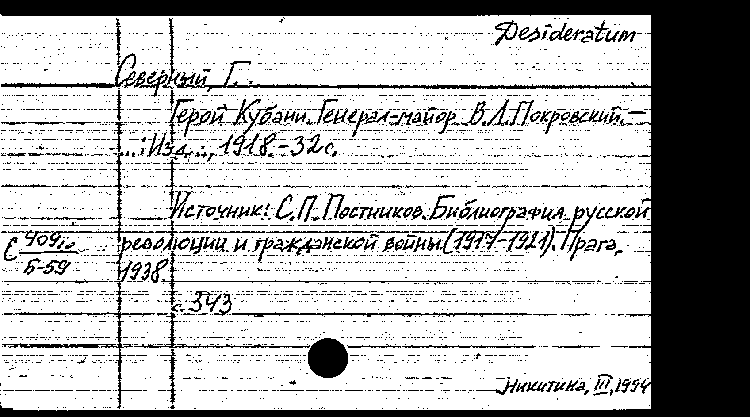 Desideratum
Северный, Г. .
Герой Кубани. Генерал-майор В.Л.Покровский.—
...: Изд...., 1918.-32с.
Источник: С.П.Постников. Библиография русской
революции и гражданской войны (1917-1921). Прага,
1938.
с.343
С 409io
Б-59
Никитина, III, 1994